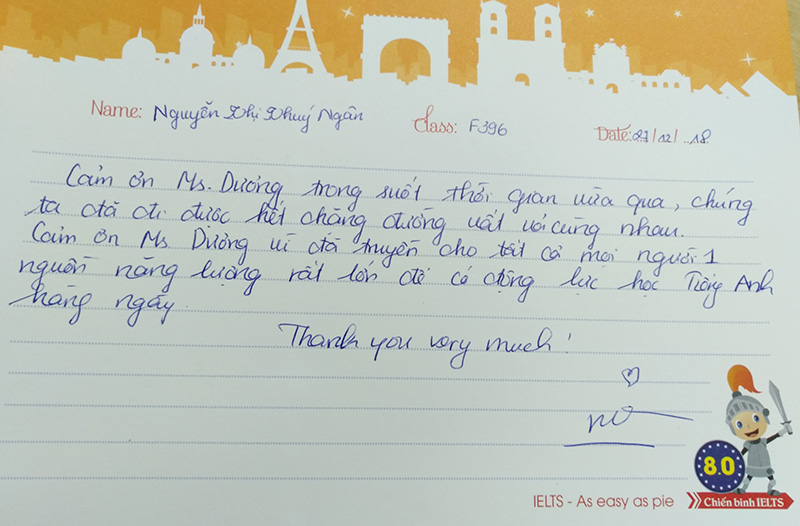 Name: Nguyễn Thị Thuý Ngân Class: F396 Date: 27/12/..18
Cảm ơn Ms. Dương trong suốt thời gian vừa qua, chúng
ta đã đi được hết chặng đường vất vả cùng nhau.
Cảm ơn Ms. Dương vì đã truyền cho tất cả mọi người 1
nguồn năng lượng rất lớn để có động lực học Tiếng Anh
hàng ngày.
Thank you very much!
8.0
IELTS - As easy as pie Chiến binh IELTS